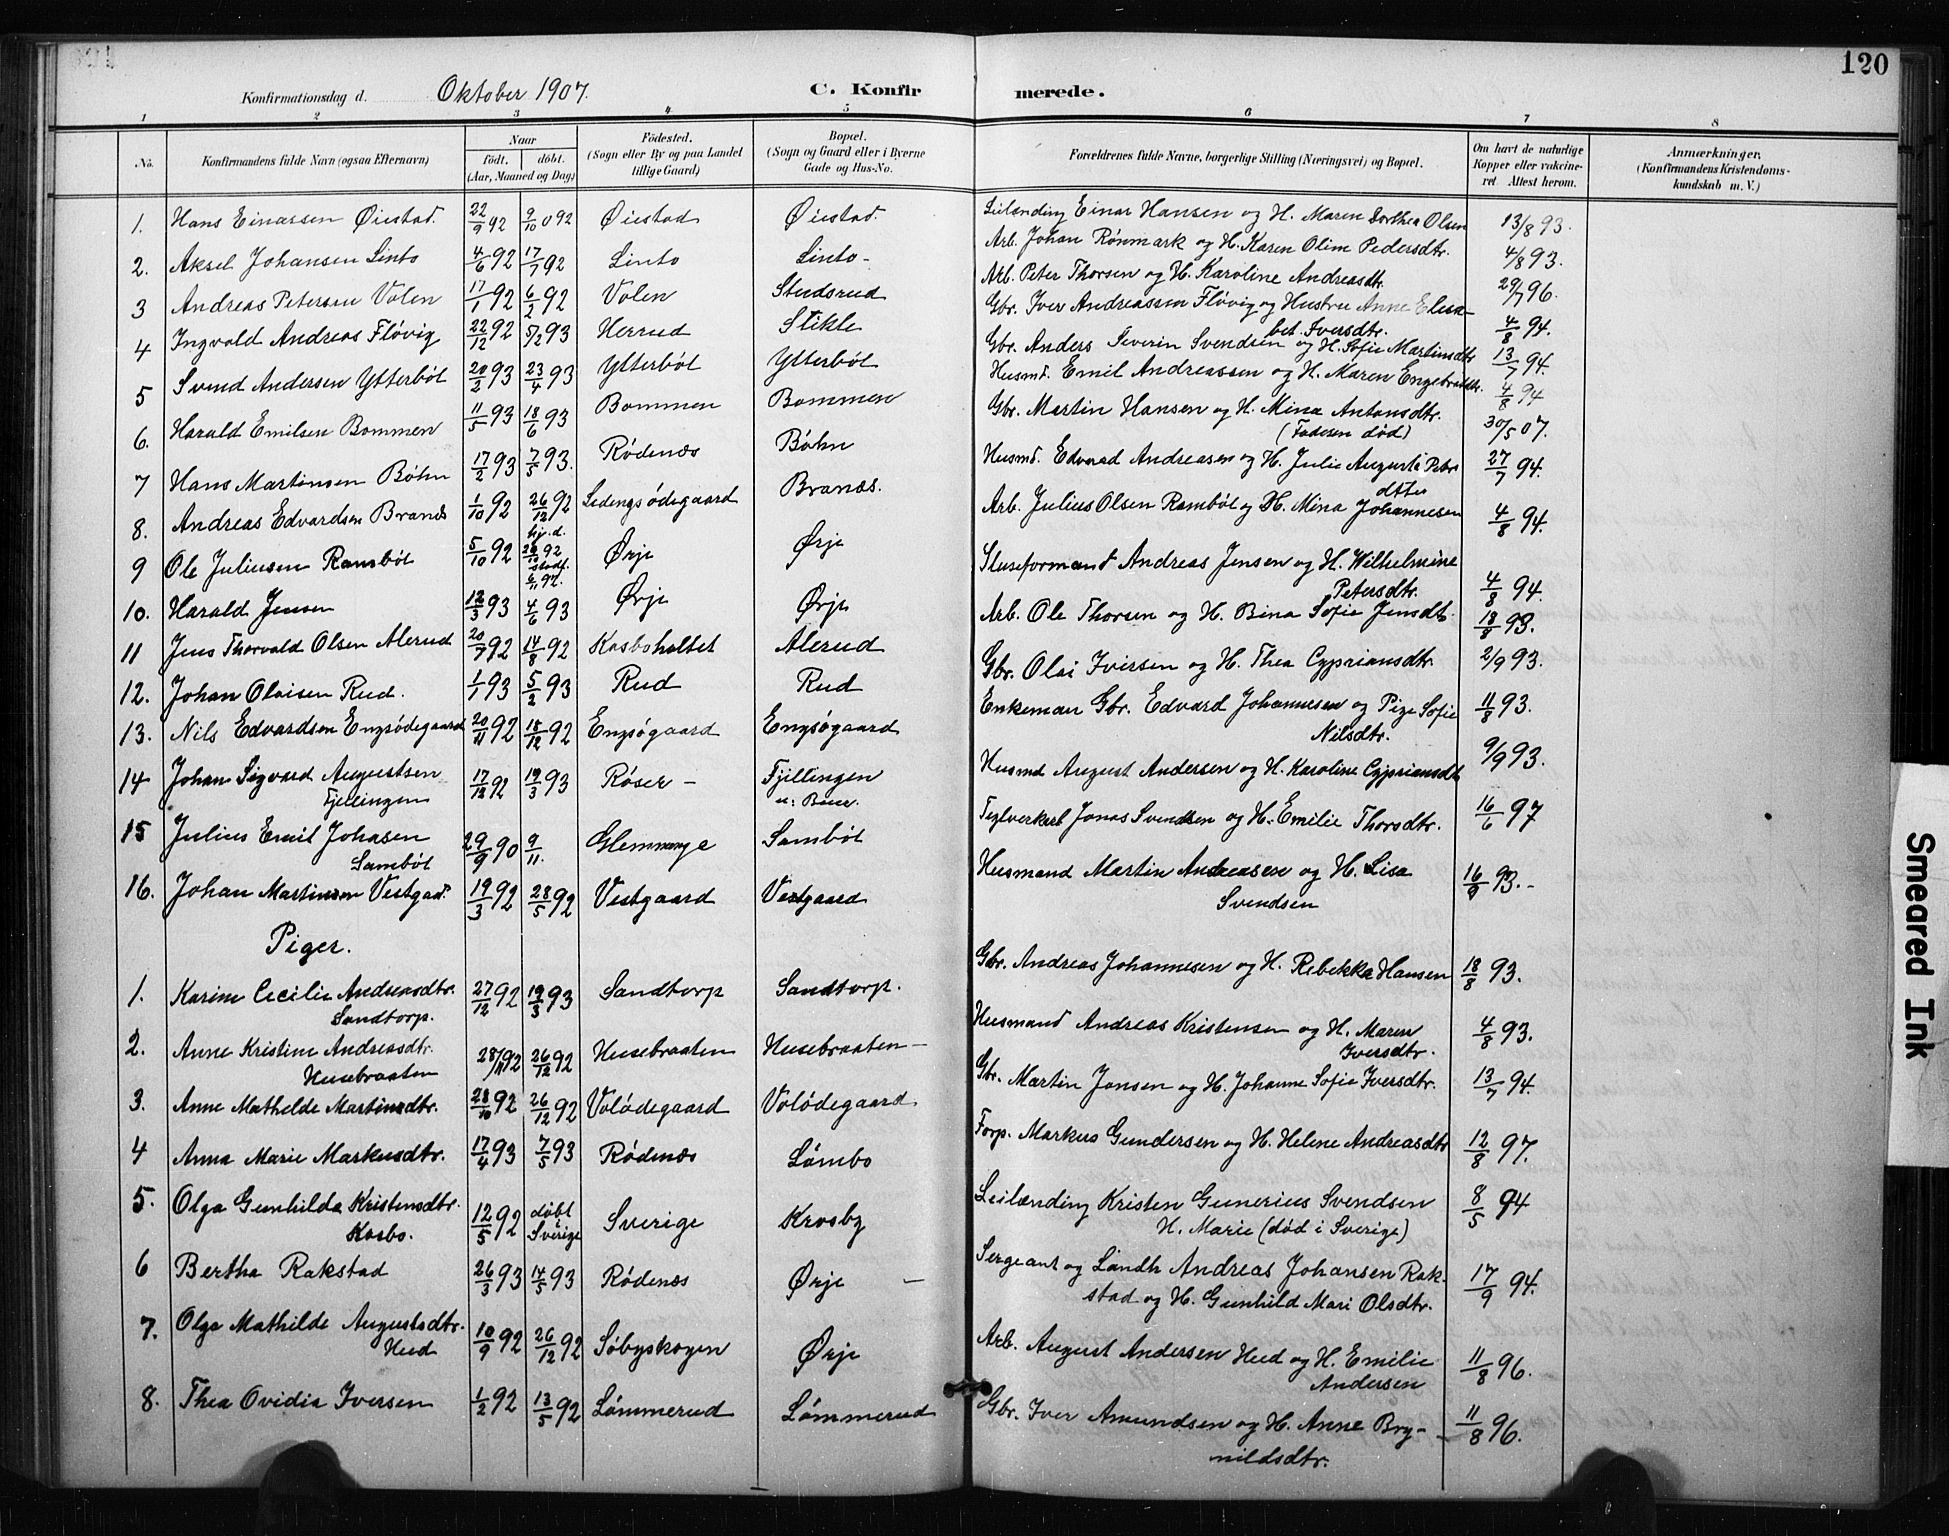 120
Konfirmationsdag d. Oktober 1907. C. Konfirmerede.
1 2 3 4 5 6 7 8
No. Konfirmandens fulde Navn (ogsaa Efternavn) Naar født. døbt. (Aar, Maaned og Dag) Fødested. (Sogn eller By og paa Landet tillige Gaard) Bopæl. (Sogn og Gaard eller i Byerne Gade og Hus-No. Forældrenes fulde Navne, borgerlige Stilling (Næringsvei) og Bopæl. Om havt de naturlige Kopper eller vakcineret. Attest herom. Anmærkninger. (Konfirmandens Kristendomskundskab m. V.)
1. Hans Einarsen Øiestad. 22/9 92 9/10 092 Øiestad Øiestad. Leilænding Einar Hansen og H. Maren Dorthea Olsen 13/8 93.
2. Aksel Johansen Linto 4/6 92 17/7 92 Linto Linto- Arb. Johan Rönmark og H. Karen Oline Pedersdtr. 4/8 93.
3 Andreas Petersen Volen 17/1 92 6/2 92 Volen Studsrud Arb. Peter Thorsen og H. Karoline Andreasdtr. 29/7 96.
4 Ingvald Andreas Fløvig 22/12 92 5/2 93 Herrud Stikle Gbr. Iver Andreassen Fløvig og Hustru Anne Elisa-
bet Iversdtr. 4/8 94.
5 Svend Andersen Ytterböt 20/2 93 23/4 93 Ytterböt Ytterböt Gbr. Anders Severin Svendsen og H. Sofie Martinsdtr 13/7 94.
6. Harald Emilsen Bommen 11/5 93 18/6 93 Bommen Bommen Husmd. Emil Andreassen og H. Maren Engebretsdtr. 4/8 94
7 Hans Martinsen Böhn 17/2 93 7/5 93. Rödenæs Böhn Gbr. Martin Hansen og H. Mina Antonsdtr.
(Faderen död) 30/5 07.
8. Andreas Edvardsen Branæs 1/10 92 26/12 92 Ledengsödegaard Branæs. Husmd. Edvard Andreasen og H. Julie Auguste Peters
dtter 27/7 94.
9 Ole Juliusen Ramböt 5/10 92 hj. d. 92 stadf. 6/11 92. Ørje Ørje Arb. Julius Olsen Ramböt og H. Mina Johannesen 4/8 94.
10. Harald Jensen 12/3 93 4/6 93 Ørje Ørje Sluseformand Andreas Jensen og H. Wilhelmine
Petersdtr. 4/8 94.
11 Jens Thorvald Olsen Alerud 20/7 92 14/8 92 Kasboholtet Alerud Arb. Ole Thorsen og H. Bina Sofie Jensdt. 18/8 93.
12. Johan Olaisen Rud. 1/1 93 5/2 93 Rud Rud Gbr. Olai Iversen og H. Thea Cypriansdtr. 2/9 93.
13. Nils Edvardsen Engsödegaard 20/11 92 18/12 92 Engsögaard Engsögaard Enkeman Gbr. Edvard Johannesen og Pige Sofie
Nilsdtr. 11/8 93.
14 Johan Sigvard Augustsen
Fjellingen 17/12 92 19/3 93 Röser - Fjellingen Husmd August Andersen og H. Karoline Cypriansdt 9/9 93.
15 Julius Emil Johasen
Lamböt 29/9 90 9/11. Glemmenge Lamböt Teglverkarb Jonas Svendsen og H. Emilie Thorsdtr. 16/6 97
16. Johan Martinsen Vestgad. 19/3 92 28/5 92 Vestgaard Vestgaard Husmand Martin Andreasen og H. Lisa
Svendsen 16/9 93.-
Piger.
1. Karine Cecilie Andreasdtr.
Sandtorp. 27/12 92 19/3 93 Sandtorp Sandtorp. Gbr. Andreas Johannesen og H. Rebekka Hansen 18/8 93.
2. Anne Kristine Andreasdtr.
Husebraaten 28/11 92 26/12 92 Husebraaten Husebraaten- Husmand Andreas Kristensen og H. Maren
Iversdtr. 4/8 93.
3. Anne Mathelde Martinsdtr. 28/10 92 26/12 92 Volödegaard Volödegaard Gbr. Martin Jonsen og H. Johanne Sofie Iversdtr. 13/7 94.
4 Anna Marie Markusdtr. 17/4 93 7/5 93 Rödenæs Lömbo Forp. Markus Gundersen og H. Helene Andreasdtr 12/8 97.
5. Olga Gunhilda Kristensdtr.
Kasbo. 12/5 92 döbt i Sverige Sverige Krosby Leilænding Kristen Gunerius Svendsen
H. Marie (död i Sverige) 8/5 94
6 Bertha Rakstad 26/3 93 14/5 93 Rödenæs Ørje - Sergeant og Landh Andreas Johansen Rak-
stad og H. Gunhild Mari Olsdtr. 17/9 94.
7. Olga Mathilde Augustsdtr.
Hud 10/9 92 26/12 92 Söbyskogen Ørje Arb. August Andersen Hud og H. Emilie
Andersen 11/8 96.
8. Thea Ovidia Iversen 1/2 92 13/5 92 Lömmerud Lömmerud Gbr. Iver Amundsen og H. Anne Bry-
nildsdtr. 11/8 96.
Smeared Ink